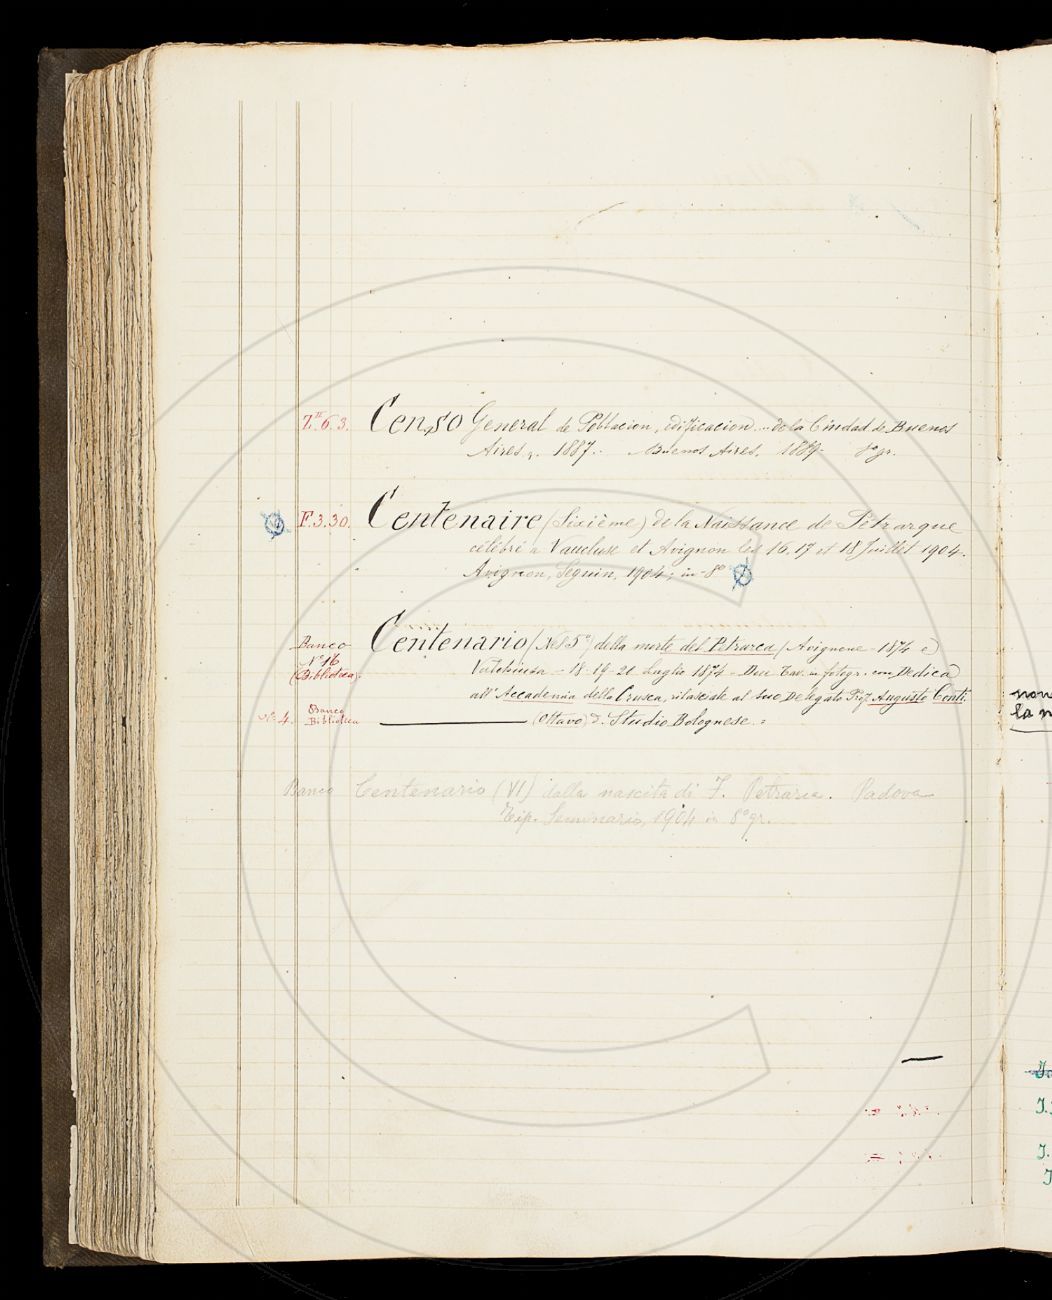 Z.ᴵᴵ6.3. Censo General de Poblacion, edificacion... de la Ciudad de Buenos
Aires, 1887.. Buenos Aires, 1889. 8º gr.
F.3.30. Centenaire (Sixième) de la Naissance de Pétrarque
célébré a Vaucluse et Avignon les 16. 17 et 18 Juillet 1904.
Avignon, Seguin, 1904; in-8º
Banco Centenario (Nel 5º) della morte del Petrarca (Avignone - 1874 e
Nº 16
Valchiusa - 18-19-21 Luglio 1874 - Due Tav. in fotogr. con Dedica
(Biblioteca).
all'Accademia della Crusca, rilasciate al suo Delegato Prof. Augusto Conti.
Nº 4. Banco
Biblioteca (Ottavo) d. Studio Bolognese.
Banco Centenario (VI) dalla nascita di F. Petrarca. Padova
Tip. Seminario, 1904 in 8º gr.
non
la